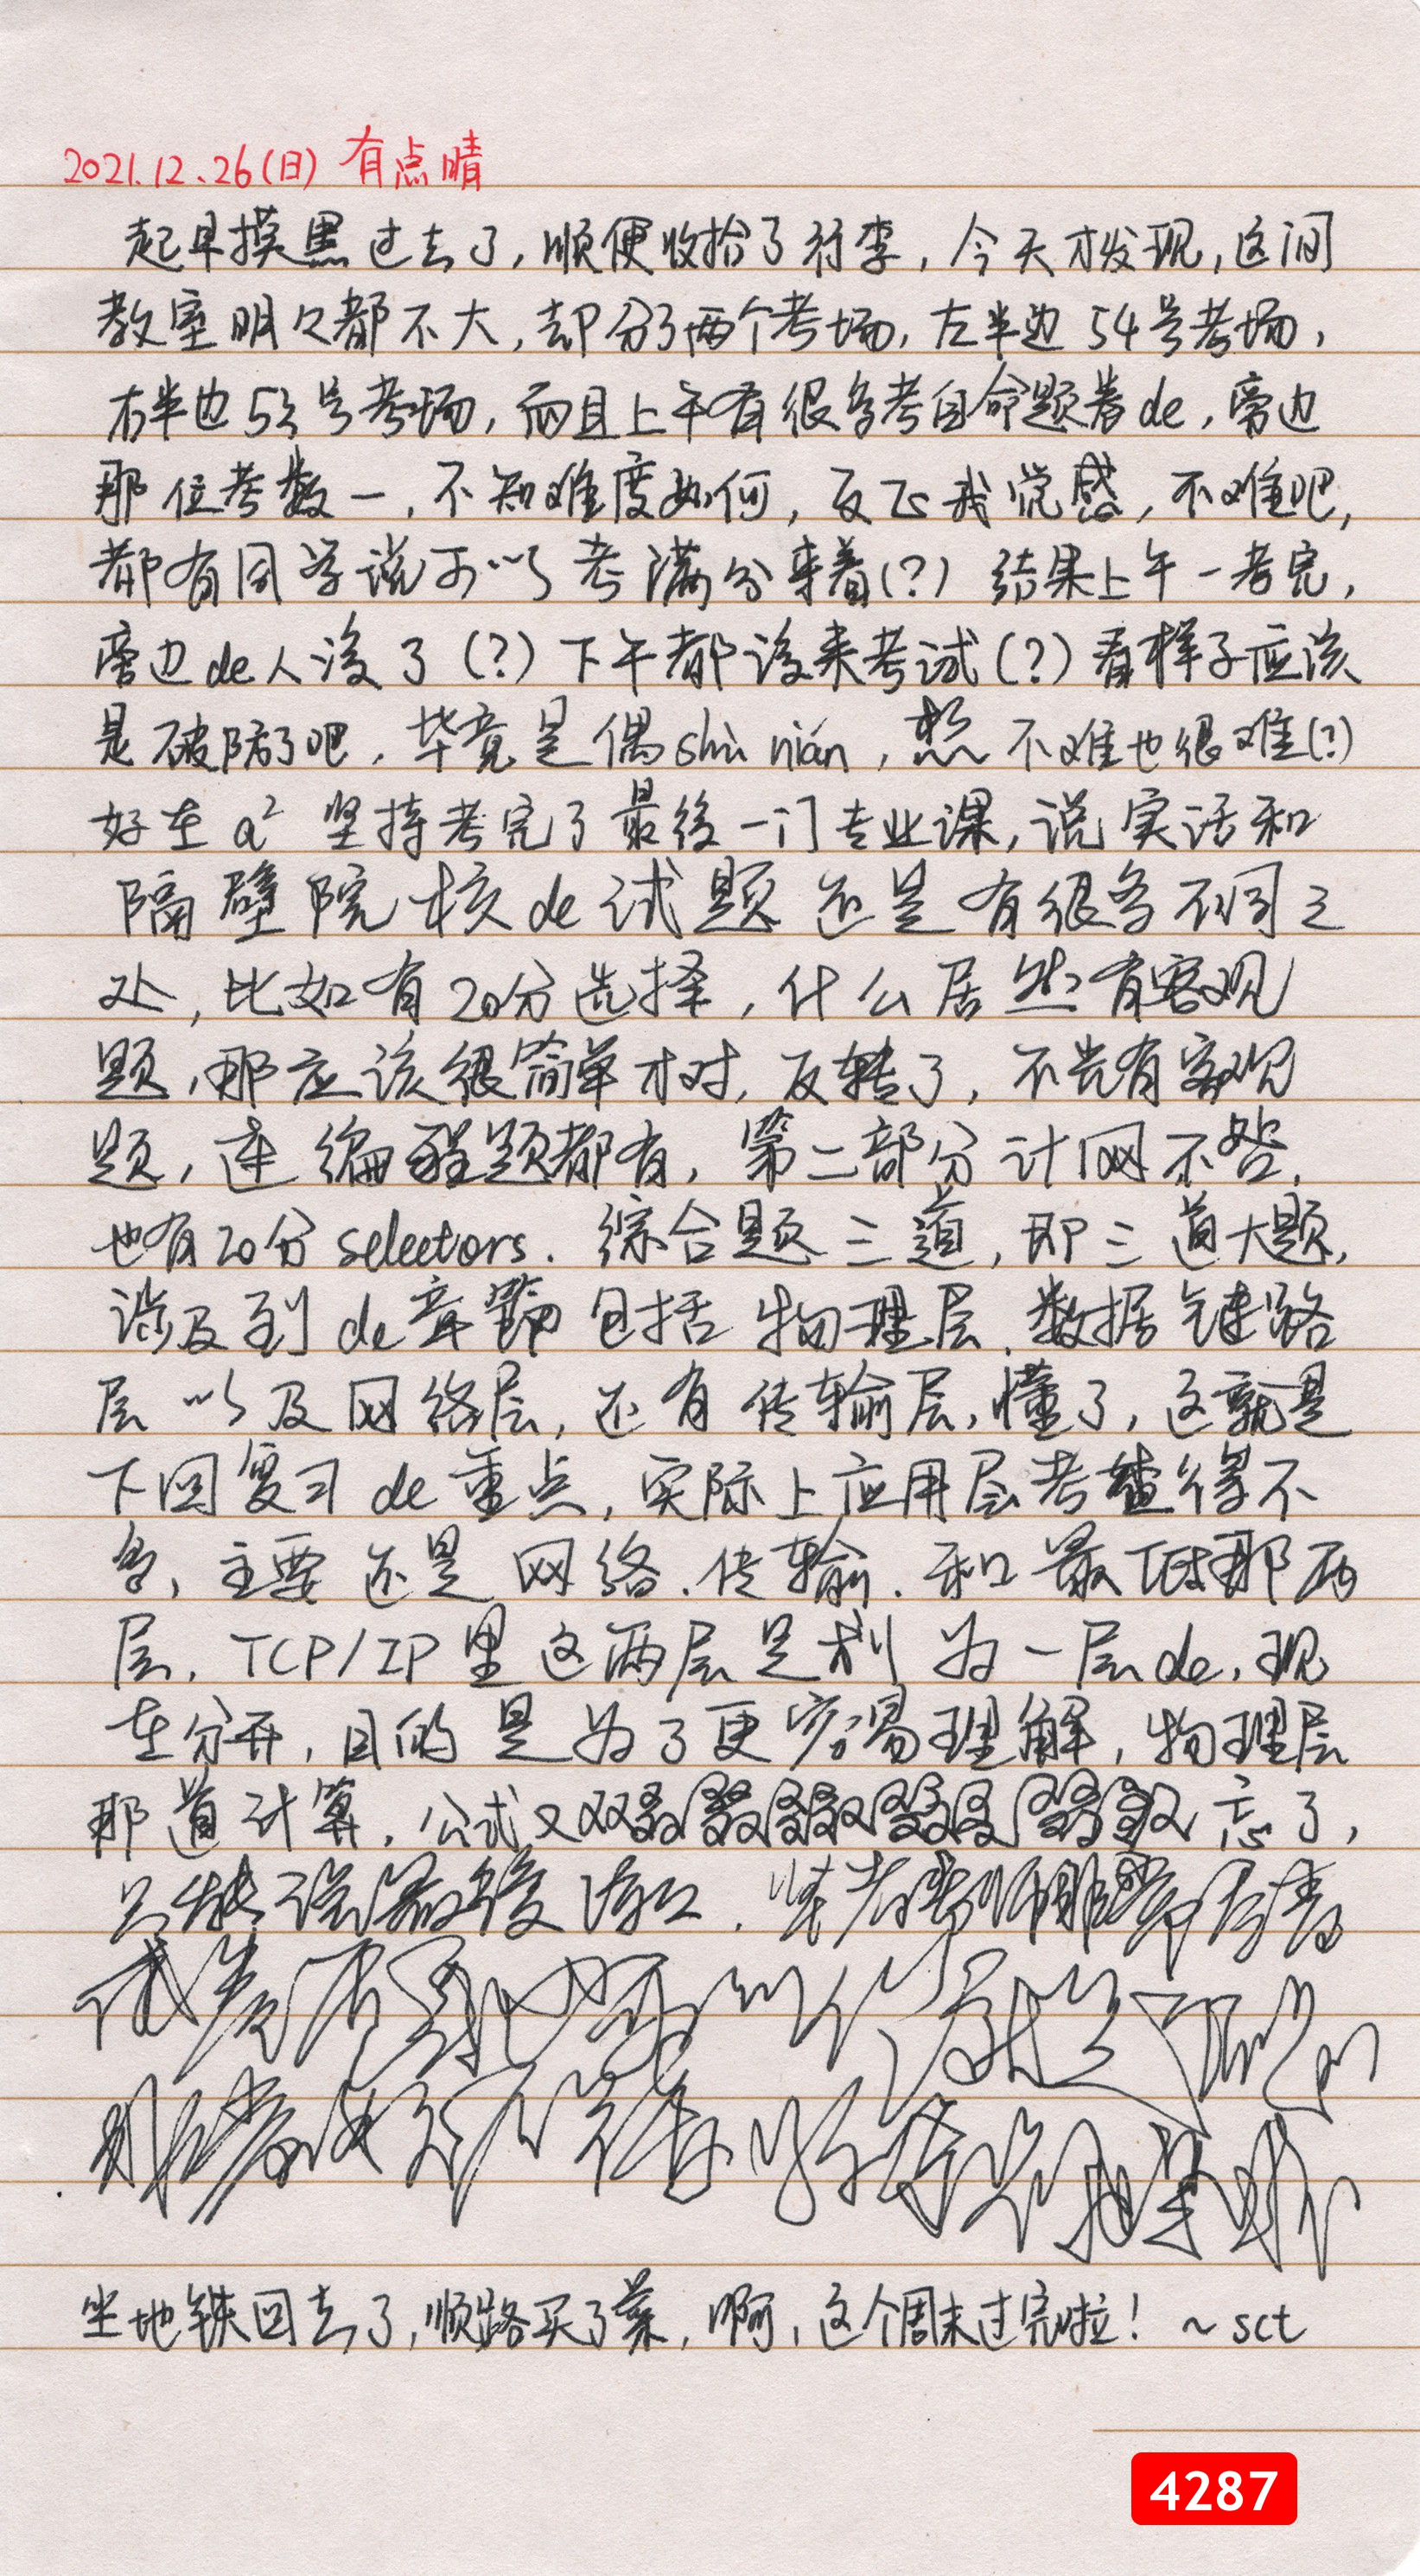 2021.12.26(日) 有点晴
起早摸黑过去了,顺便收拾了行李,今天才发现,这间
教室明々都不大,却分了两个考场,左半边54号考场,
右半边53号考场,而且上午有很多考自命题着de,旁边
那位考数一,不知难度如何,反正我觉感,不难吧,
都有同学说可以考满分来着(?) 结果上午一考完,
旁边de人没了(?)下午都没来考试(?)看样子应该
是破防了吧,毕竟是偶shù nián,想不难也很难(?)
好在a² 坚持考完了最後一门专业课,说实话和
隔壁院校de试题还是有很多不同之
处,比如有20分选择,什么居然有客观
题,那应该很简单才对,反转了,不光有客观
题,连编程题都有,第二部分计网不咎,
也有20分selectors.综合题三道,即三道大题,
涉及到de章节包括物理层、数据链路
层以及网络层,还有传输层,懂了,这就是
下回复习de重点,实际上应用层考查得不
多,主要还是网络、传输、和最下那两
层,TCP/IP里这两层是划为一层de,现
在分开,目的是为了更容易理解,物理层
那道计算,公式又双叒叕忘了,
坐地铁回去了,顺路买了菜,啊,这个周末过完啦! ~sct
4287